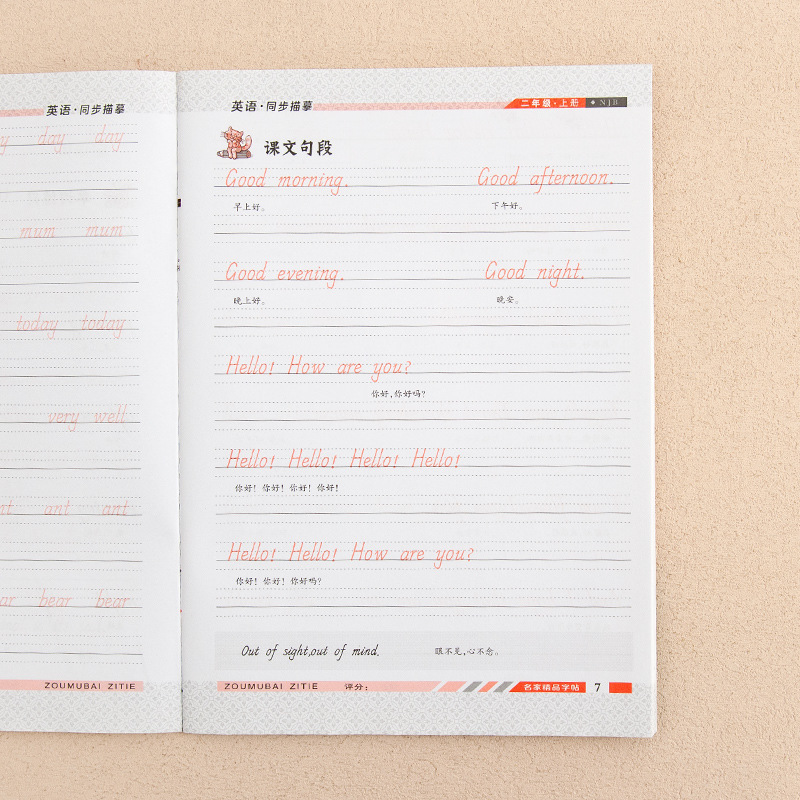 英语·同步描摹
day day
mum mum
today today
very well
ant ant
bear bear
ZOUMUBAI ZITIE
英语·同步描摹 二年级·上册 NJB
课文句段
Good morning. Good afternoon.
早上好。 下午好。
Good evening. Good night.
晚上好。 晚安。
Hello! How are you?
你好,你好吗?
Hello! Hello! Hello! Hello!
你好! 你好! 你好! 你好!
Hello! Hello! How are you?
你好! 你好! 你好吗?
Out of sight,out of mind. 眼不见,心不念。
ZOUMUBAI ZITIE 评分: 名家精品字帖 7